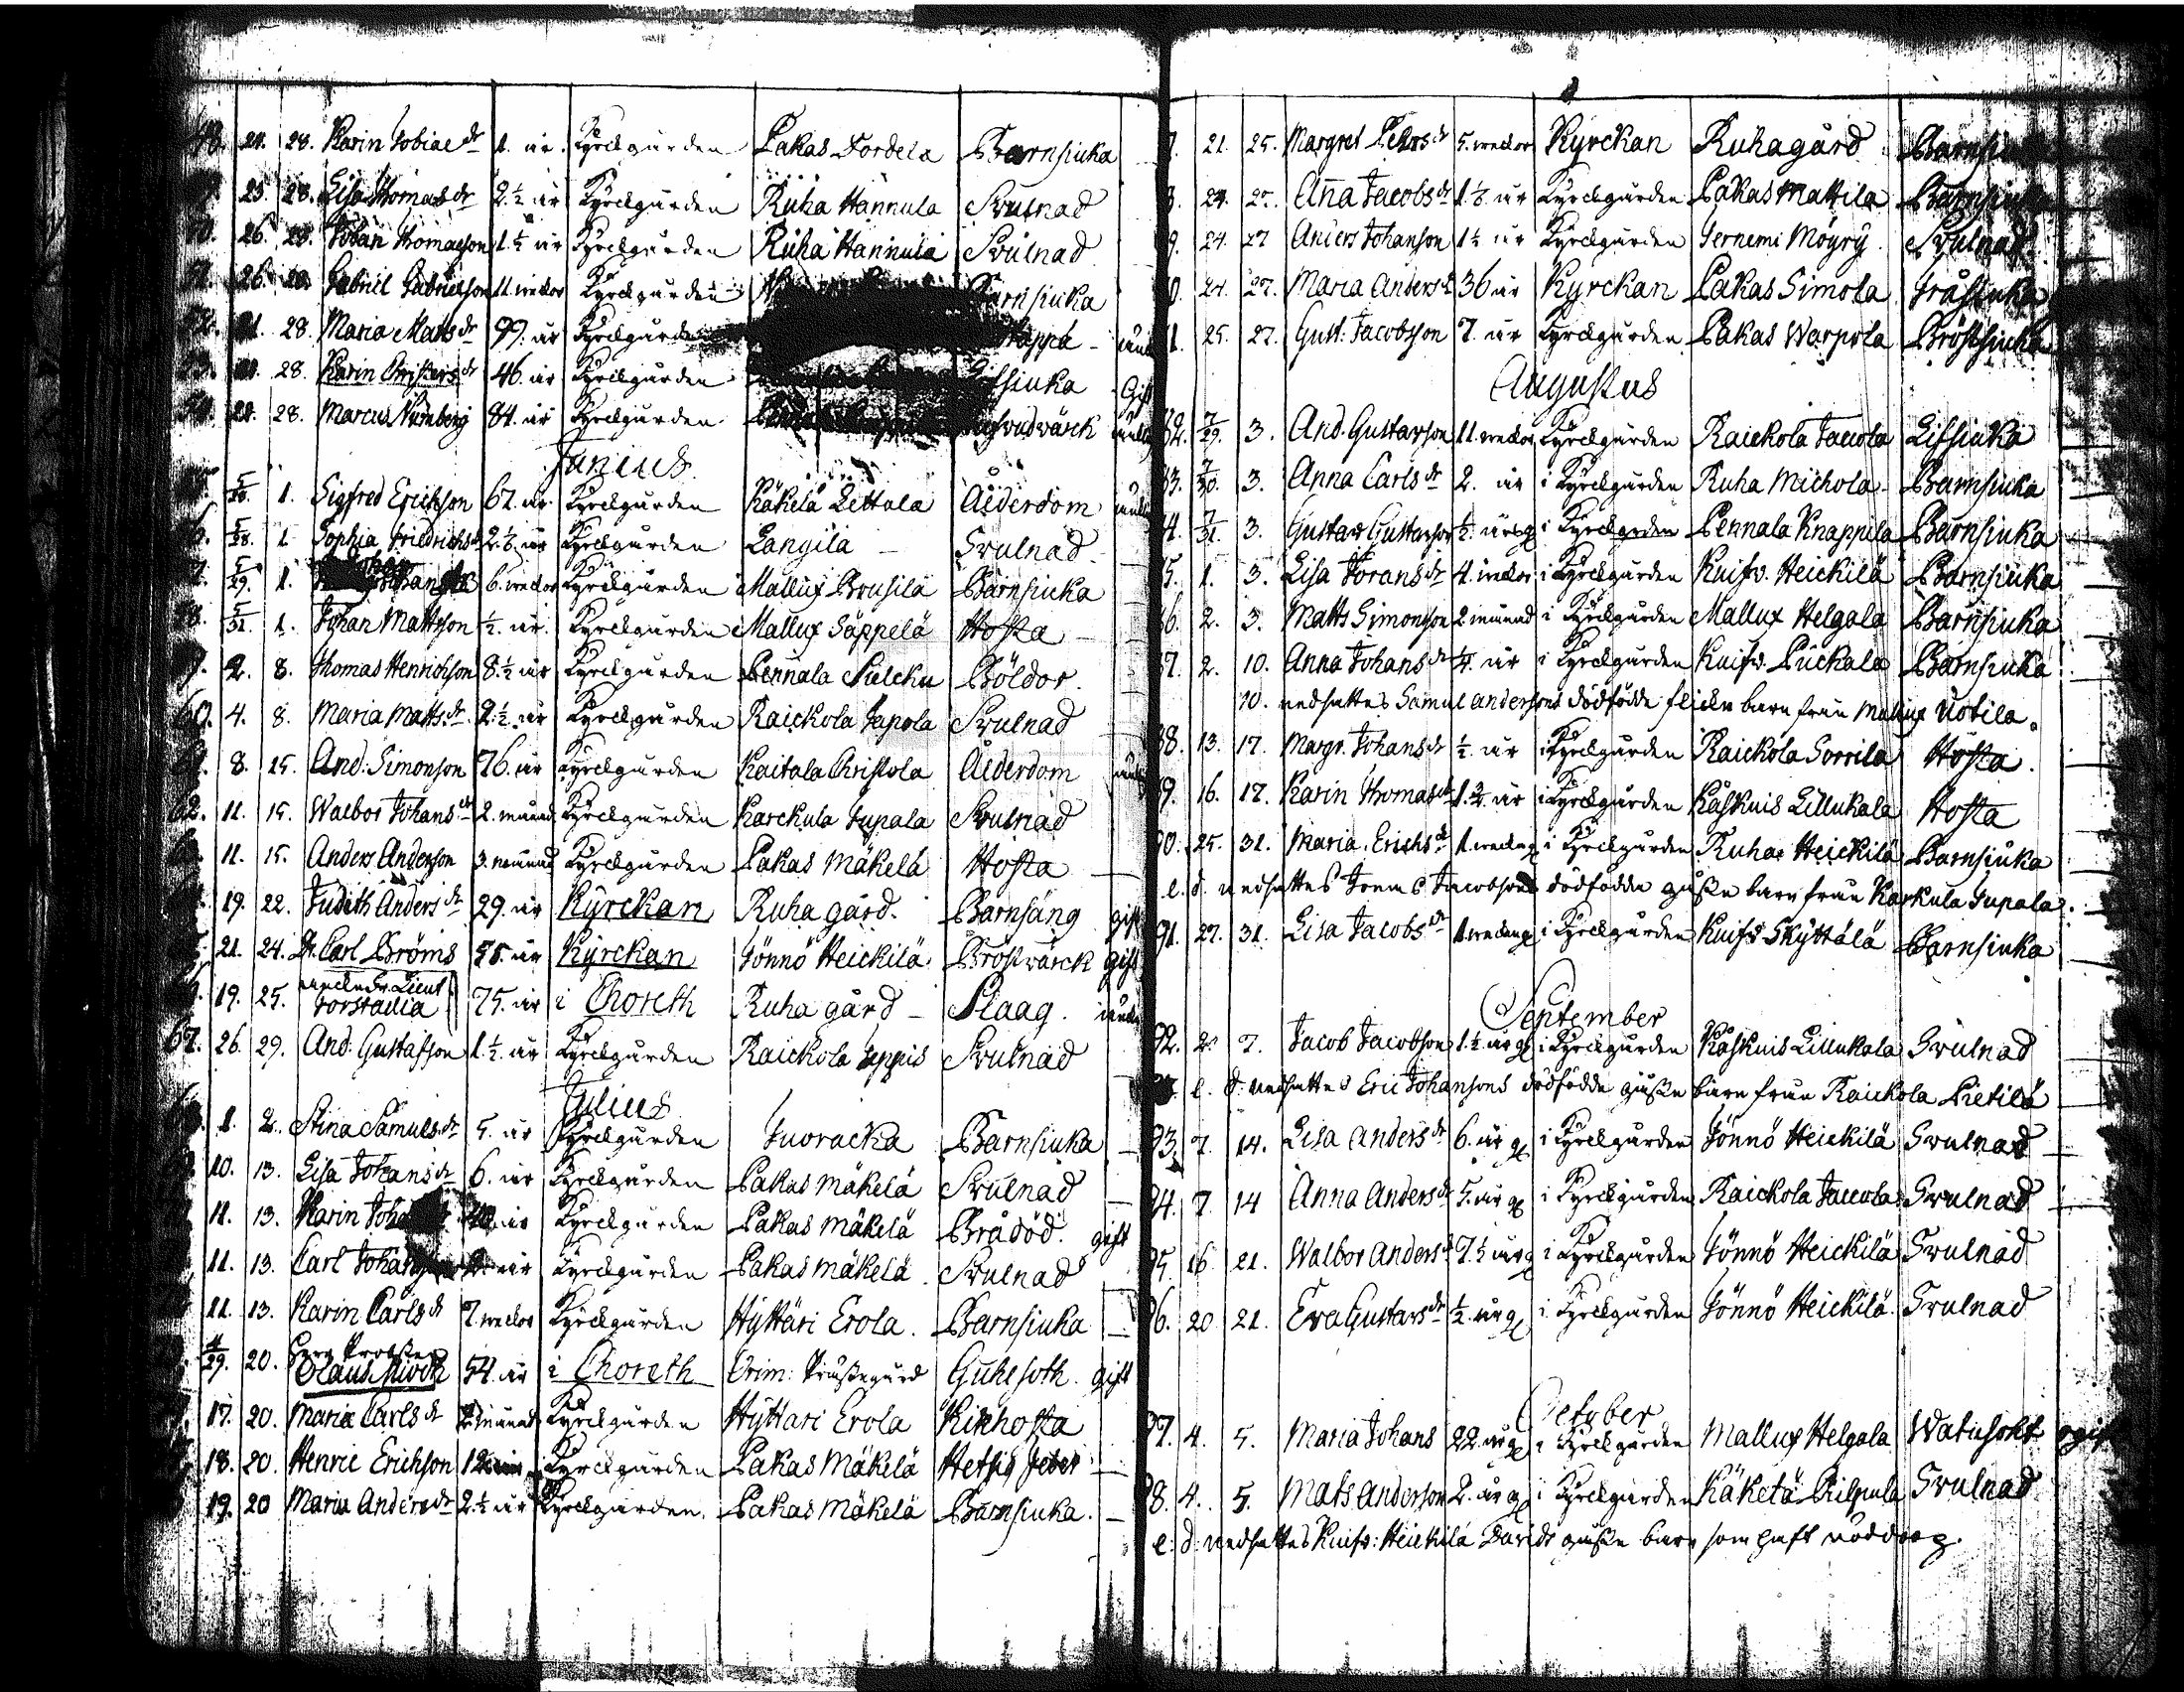 48. 21. 28. Karin Tobiae dr 1. år. Kyrckgården Pakas Tordela Barnsiuka
9. 25. 28. Lisa Thomas dr 2.½ år Kyrckgården Ruha Hannula Svulnad
50. 26. 28. Johan Thomasson 1.½ år Kyrckgården Ruha Hannula Svulnad
51. 26. 28. Gabriel Gabrielson 11. weckor Kyrckgården Barnsiuka
28. Maria Mats dr 99. år Kyrckgården
28. Karin Christers dr 46. år Kyrckgården Gift
28. Marcus Nürnberg 84. år Kyrckgården
Junius
5/28. 1. Sigfred Erichson 67. år Kyrckgården Käkelä Lettala Ålderdom
6. 5/28. 1. Sophia Friedrichs dr Kyrckgården Langila Svulnad
5/29. 1. 6. weckor Kyrckgården Mallux Brusila Barnsiuka
5/31. 1. Johan Mattson ½. år. Kyrckgården Mallux Säppelä Hosta
9. 2. 8. Thomas Henrichson 8.½ år Kyrckgården Pennala Böldor.
60. 4. 8. Maria Matts. dr 2.½ år Kyrckgården Raickola Jupola Svulnad
8. 15. And: Simonson 76. år Kyrckgården Kaitala Christola Ålderdom
62. 11. 15. Walbor Johans dr 2. månad Kyrckgården Karckula Jupala Svulnad
11. 15. Anders Anderson 3. månad Kyrckgården Pakas Mäkelä Hosta
19. 22. Judith Anders dr 29. år Kyrckan Ruha gård. Barnsäng gift
21. 24. Carl Bröms 55. år Kyrckan Jönnö Heickilä Bröstwärck gift
19. 25. Lieut Torstadia 75. år i Choreth Ruha gård Slaag.
67. 26. 29. And: Gustafson 1.½. år Kyrckgården Raickola Jeppis Svulnad
Julius
1. 2. Stina Samuels. dr 5. år Kyrckgården Juoracka Barnsiuka
10. 13. Lisa Johans dr 6. år Kyrckgården Pakas Mäkelä Svulnad
11. 13. Karin Kyrckgården Pakas Mäkelä Brådöd. gift
11. 13. Carl Johanson år Kyrckgården Pakas Mäkelä Svulnad
11. 13. Karin Carls dr 7. weckor Kyrckgården Hyttäri Erola. Barnsiuka
4/29. 20. Herr Probsten Olaus 54. år i Choreth Orim: Prästegård gift
17. 20. Maria Carls dr månad Kyrckgården Hyttäri Erola Kikhosta
18. 20. Henric Erichson Kyrckgården Pakas Mäkelä Hetsig feber
19. 20 Maria Anders dr 2.½ år Kyrckgården. Pakas Mäkelä Barnsiuka.
7. 21. 25. Margret Pehrs dr 5. weckor Kyrckan Ruhagård
8. 24. 25. Anna Jacobs dr år Kyrckgården Pakas Mattila Barnsiuka
9. 24. 27 Anders Johanson 1½ år Kyrckgården Jernemi Möyry. Svulnad
0. 24. 27. Maria Anders dr 36 år Kyrckan Pakas Simola Tråsiuka
1. 25. 27. Gust: Jacobson 7. år Kyrckgården Pakas Warpola Bröstsiuka
Augustus
82. 7/29. 3. And. Gustavson 11. weckor Kyrckgården Raickola Jaccola
83. 7/30. 3. Anna Carls dr 2. år i Kyrckgården Ruha Michola Barnsiuka
84. 7/31. 3. Gustav Gustavson ½. års i Kyrckgården Pennala Knappila Barnsiuka
85. 1. 3. Lisa Jörans dr 4. weckor i Kyrckgården Kuifv. Heickilä Barnsiuka
86. 2. 3. Matts Simonson 2 månad i Kyrckgården Mallux Helgala Barnsiuka
87. 2. 10. Anna Johans dr år i Kyrckgården Kuifv. Puckala Barnsiuka
10. nedsattes Samuel Andersons dödfödde flicke barn från Mallux Uotila.
88. 13. 17. Margr. Johans dr ½. år i Kyrckgården Raickola Sorrila Hosta.
89. 16. 17. Karin Thomas dr år i Kyrckgården Käskuis Lillukala Hosta
90. 25. 31. Maria. Erichs dr 1. weckog i Kyrckgården Ruhas Heickilä Barnsiuka
e. d. nedsattes Jacobsons dödfödde gosse barn från Karkula Jupala.
91. 27. 31. Lisa Jacobs dr i Kyrckgården Kuifv Skyttälä Barnsiuka
September
92. 2. 7. Jacob Jacobson 1.½ år i Kyrckgården Käskuis Lillukala Svulnad
e. d. nedsattes Eric Johansons dödfödde gosse barn från Raickola Pietilä
93. 7. 14. Lisa Anders dr 6. år i Kyrckgården Jönnö Heickilä Svulnad
94. 7. 14 Anna Anders dr 5. år i Kyrckgården Raickola Jaccola Svulnad
95. 16. 21. Walbor Anders dr 7.½ år i Kyrckgården Jönnö Heickilä Svulnad
96. 20 21. Eva Gustavs dr ½. år i Kyrckgården Jönnö Heickilä. Svulnad
October
97. 4. 5. Maria Johans 22. år i Kyrckgården Mallux Helgala Watusoht ogift
98. 4. 5. Mats Anderson 2. år i Kyrckgården Käkelä Kilpiala Svulnad
e: d: nedsattes Kuifv: Heickilä Davids gosse barn som haft nöddop.